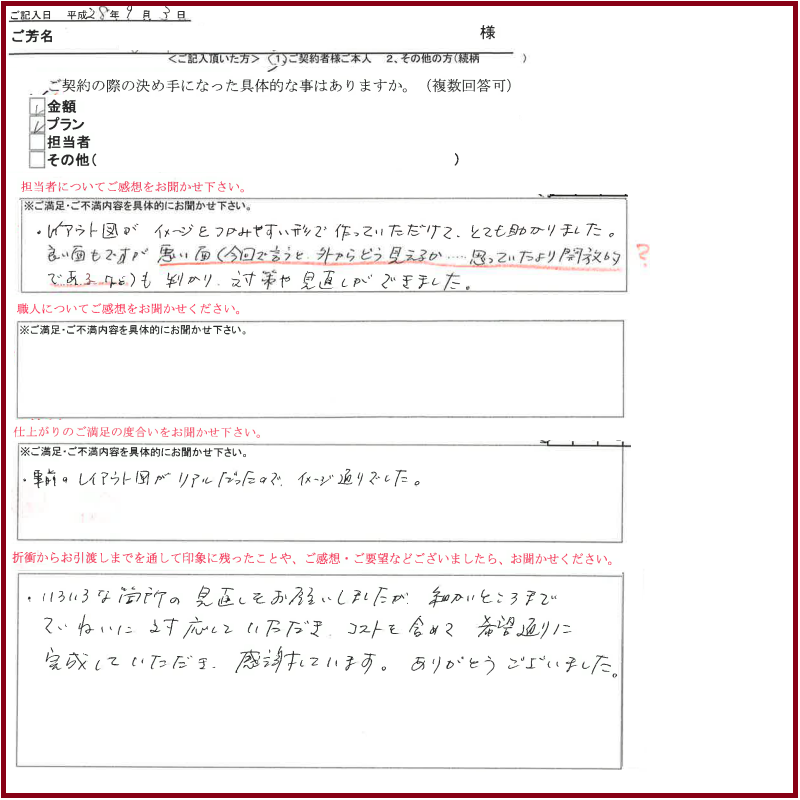 ご記入日 平成28年9月3日
ご芳名 様
<ご記入頂いた方> 1、ご契約者様ご本人 2、その他の方(続柄 )
ご契約の際の決め手になった具体的な事はありますか。（複数回答可）
金額
プラン
担当者
その他( )
担当者についてご感想をお聞かせ下さい。
※ご満足・ご不満内容を具体的にお聞かせ下さい。
・レイアウト図が イメージをつかみやすい形で作っていただけて、とても助かりました。
良い面もですが 悪い面(今回で言うと、外からどう見えるか……思っていたより開放的 ?
である など)も 判かり、対策や見直しができました。
職人についてご感想をお聞かせください。
※ご満足・ご不満内容を具体的にお聞かせ下さい。
仕上がりのご満足の度合いをお聞かせ下さい。
※ご満足・ご不満内容を具体的にお聞かせ下さい。
・事前のレイアウト図がリアルだったので、イメージ通りでした。
折衝からお引渡しまでを通して印象に残ったことや、ご感想・ご要望などございましたら、お聞かせください。
・いろいろな箇所の見直しをお願いしましたが、細かいところまで
ていねいに対応していただき、コストも含めて 希望通りに
完成していただき、感謝しています。ありがとうございました。